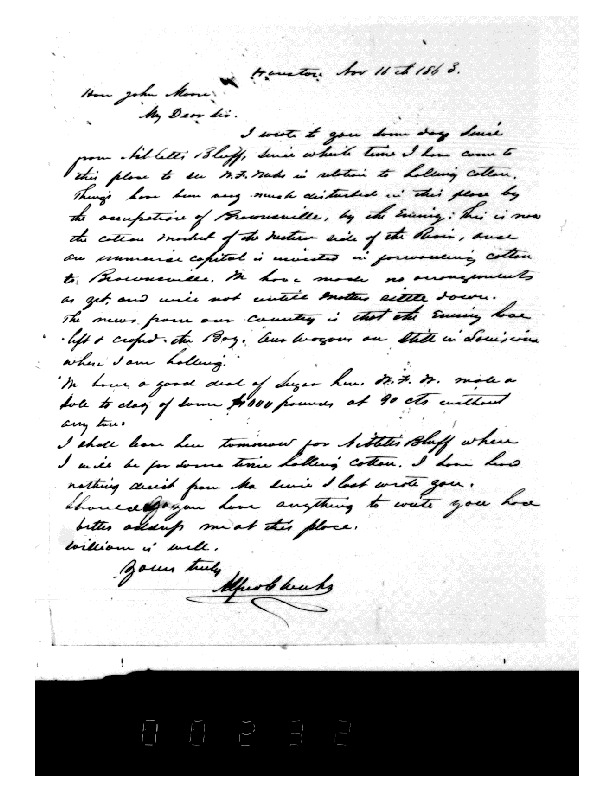 Houston Nov 16th 1863.
Hon John Moore
My Dear Sir.
I wrote to you some days since
from Nibletts Bluff, since which time I have come to
this place to see W. F. Weeks in relation to hauling cotton.
Things have been very much disturbed in this place by
the occupation of Brownsville, by the Enemy. This is now
the cotton market of the western side of the River, and
an immense capital is invested in forwarding cotton
to Brownsville. We have made no arrangements
as yet and will not until matters settle down.
The news from our country is that the Enemy have
left & crossed the Bay. Our wagons are still in Louisiana
where I am hauling.
We have a good deal of Sugar here. W. F. W. made a
sale to day of some pounds at 90 cts without
any tare.
I shall leave here tomorrow for Niblets Bluff where
I will be for some time hauling cotton. I have had
nothing direct from Ma since I last wrote you.
Should you have anything to write you had
better address me at this place.
William is well.
Yours truly
Alfred C Weeks
00232